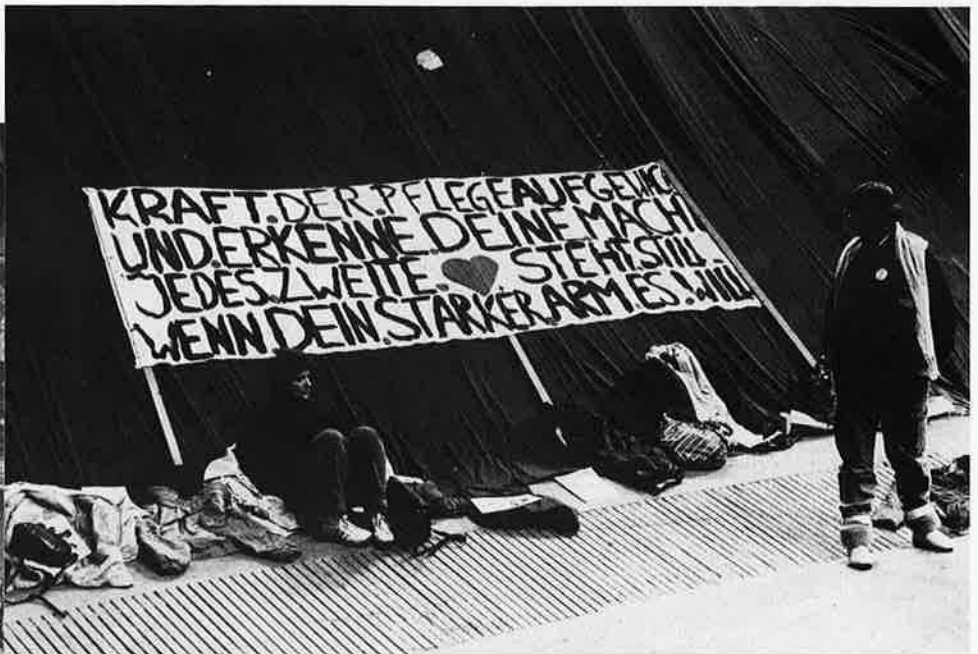 KRAFT.DER.PFLEGE AUFGEWAC
UND.ERKENNE.DEINE MACH
JEDES.ZWEITE. STEHT.STILL
WENN DEIN.STARKER.ARM ES.WILL